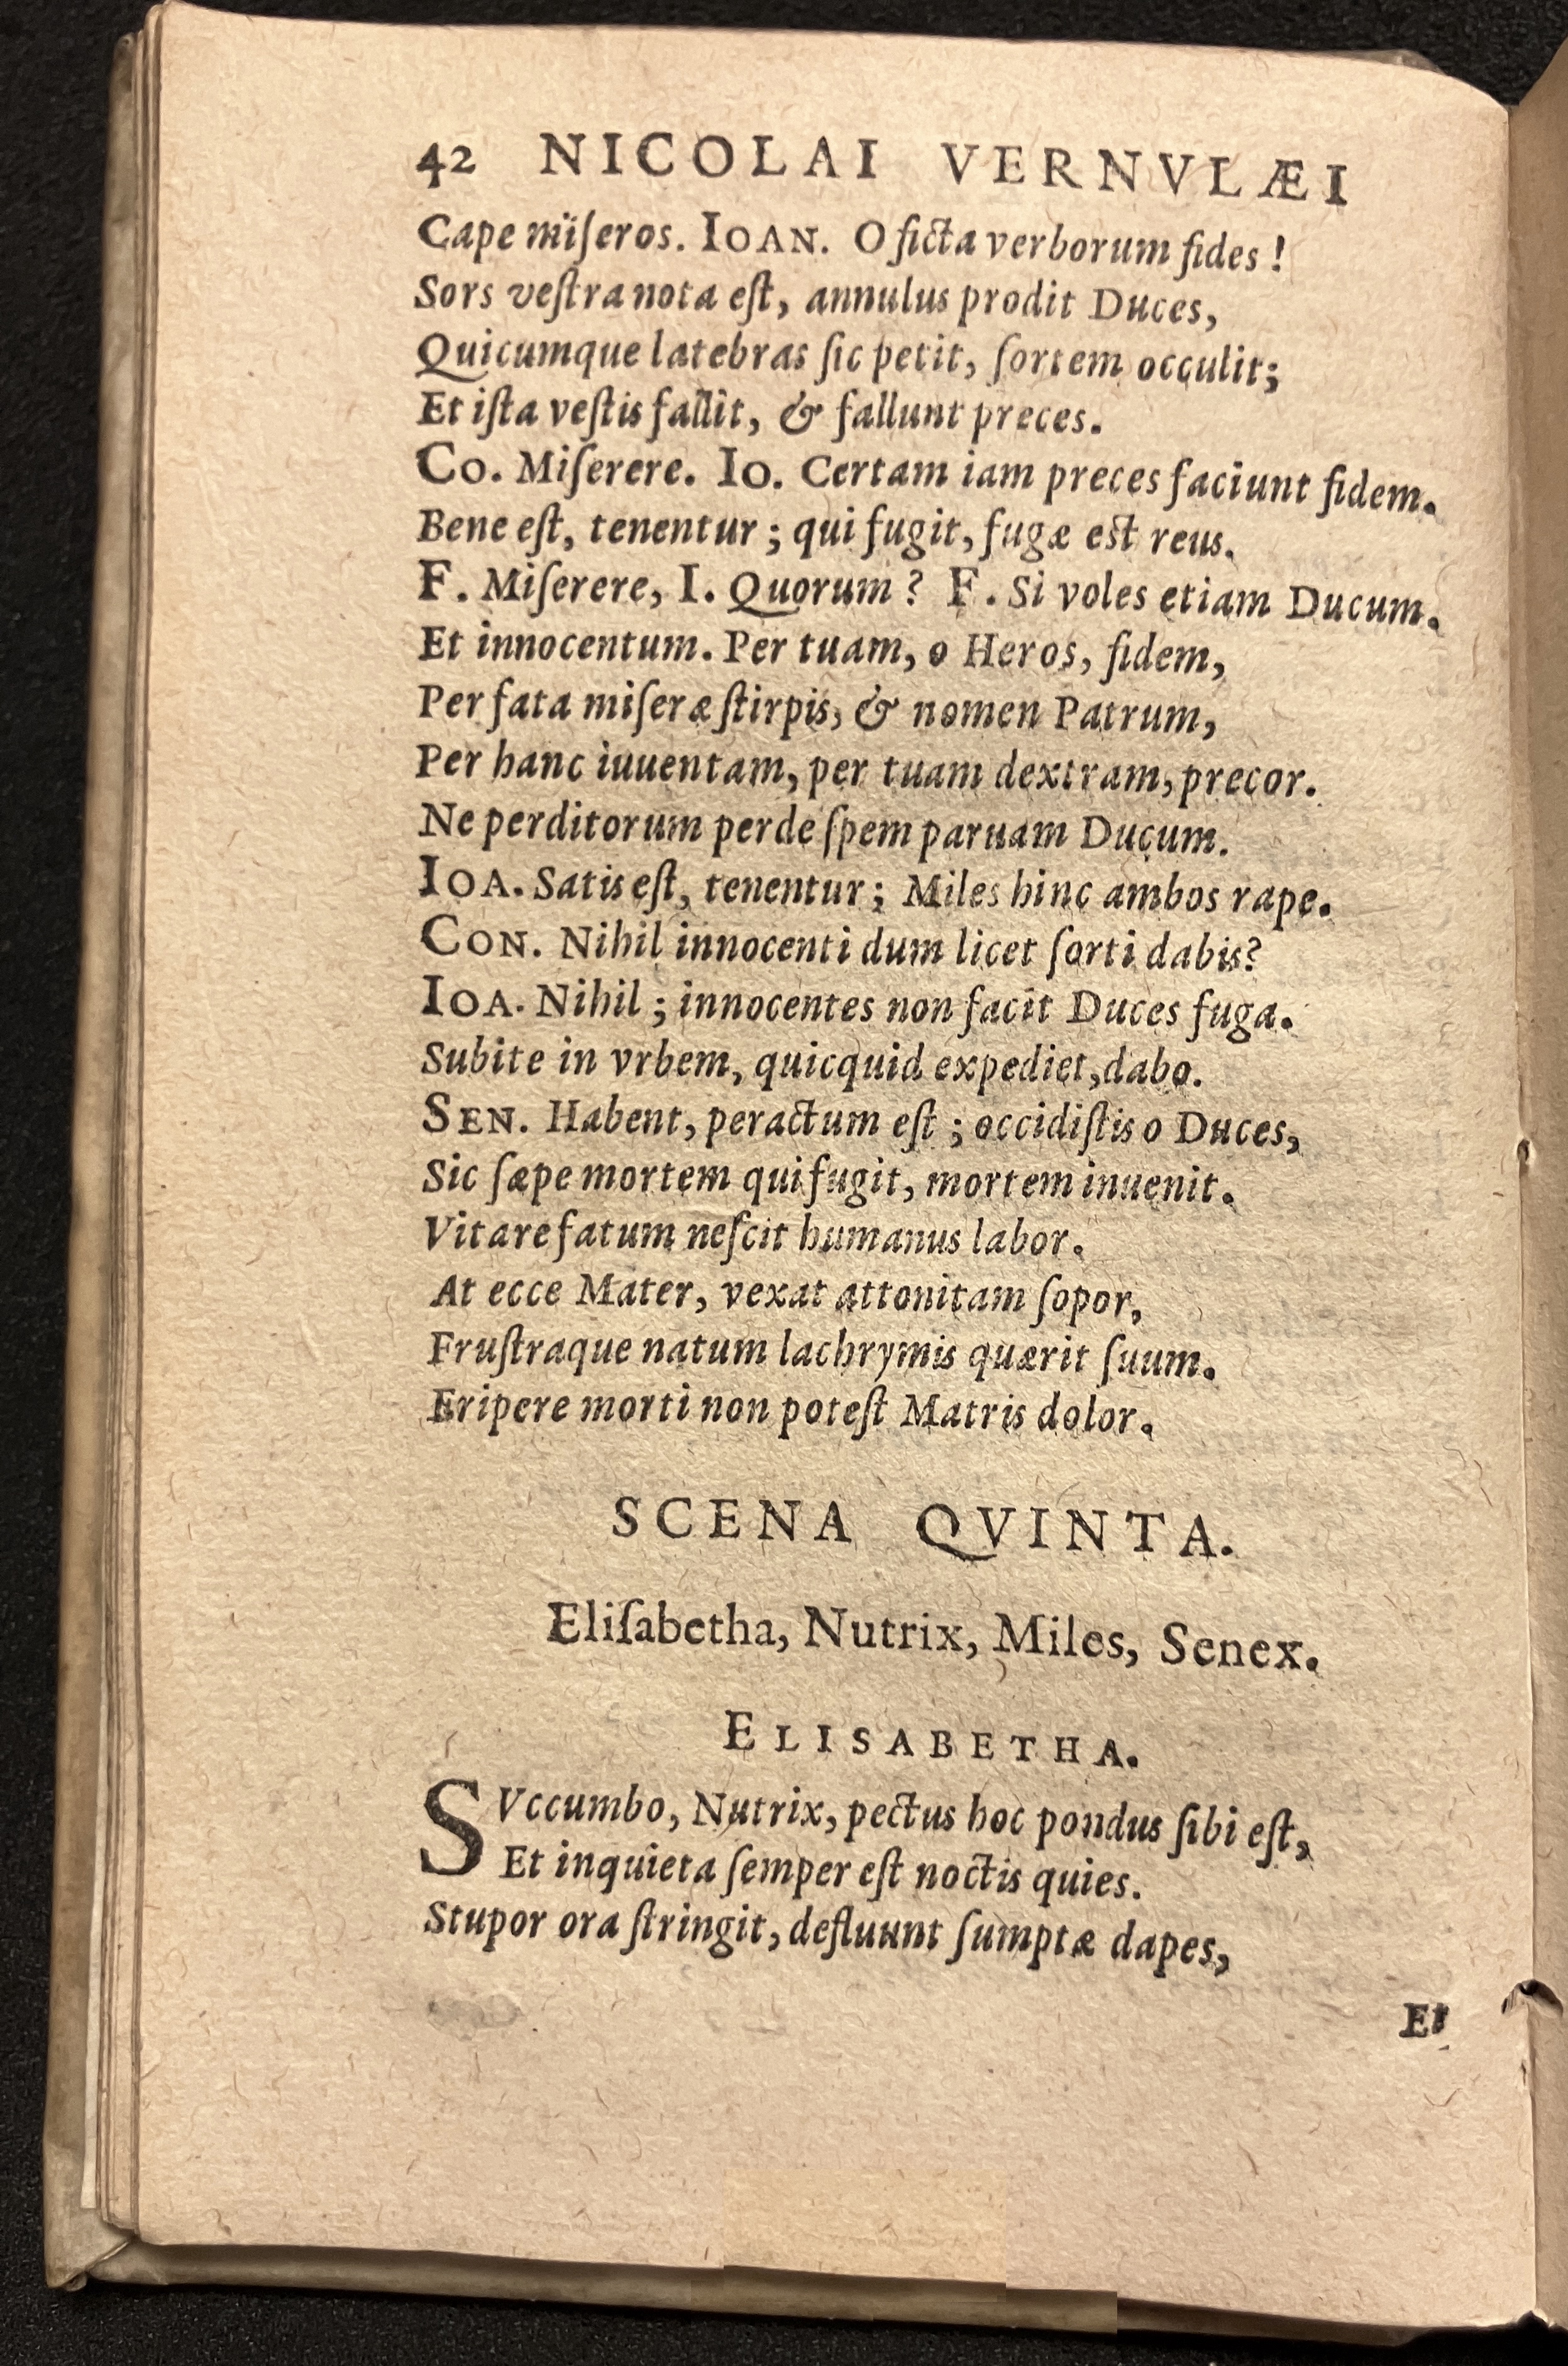 42 NICOLAI VERNVLÆI
Cape miſeros. IOAN. O ficta verborum fides !
Sors veſtra nota eſt, annulus prodit Duces,
Quicumque latebras ſic petit, ſortem occulit;
Et iſta veſtis fallit, & fallunt preces.
CO. Miſerere. IO. Certam iam preces faciunt fidem.
Bene eſt, tenentur ; qui fugit, fugæ est reus.
F. Miſerere, I. Quorum ? F. Si voles etiam Ducum.
Et innocentum. Per tuam, o Heros, fidem,
Per fata miſeræ ſtirpis, & nomen Patrum,
Per hanc iuuentam, per tuam dextram, precor.
Ne perditorum perde ſpem paruam Ducum.
IOA. Satis eſt, tenentur ; Miles hinc ambos rape.
CON. Nihil innocenti dum licet ſorti dabis?
IOA. Nihil ; innocentes non facit Duces fuga.
Subite in vrbem, quicquid expediet, dabo.
SEN. Habent, peractum eſt ; occidiſtis o Duces,
Sic ſæpe mortem qui fugit, mortem inuenit.
Vitare fatum neſcit humanus labor.
At ecce Mater, vexat attonitam ſopor,
Fruſtraque natum lachrymis quærit ſuum.
Eripere morti non poteſt Matris dolor.
SCENA QVINTA.
Eliſabetha, Nutrix, Miles, Senex.
ELISABETHA.
SVccumbo, Nutrix, pectus hoc pondus ſibi eſt,
Et inquieta ſemper eſt noctis quies.
Stupor ora ſtringit, defluunt ſumptæ dapes,
Et